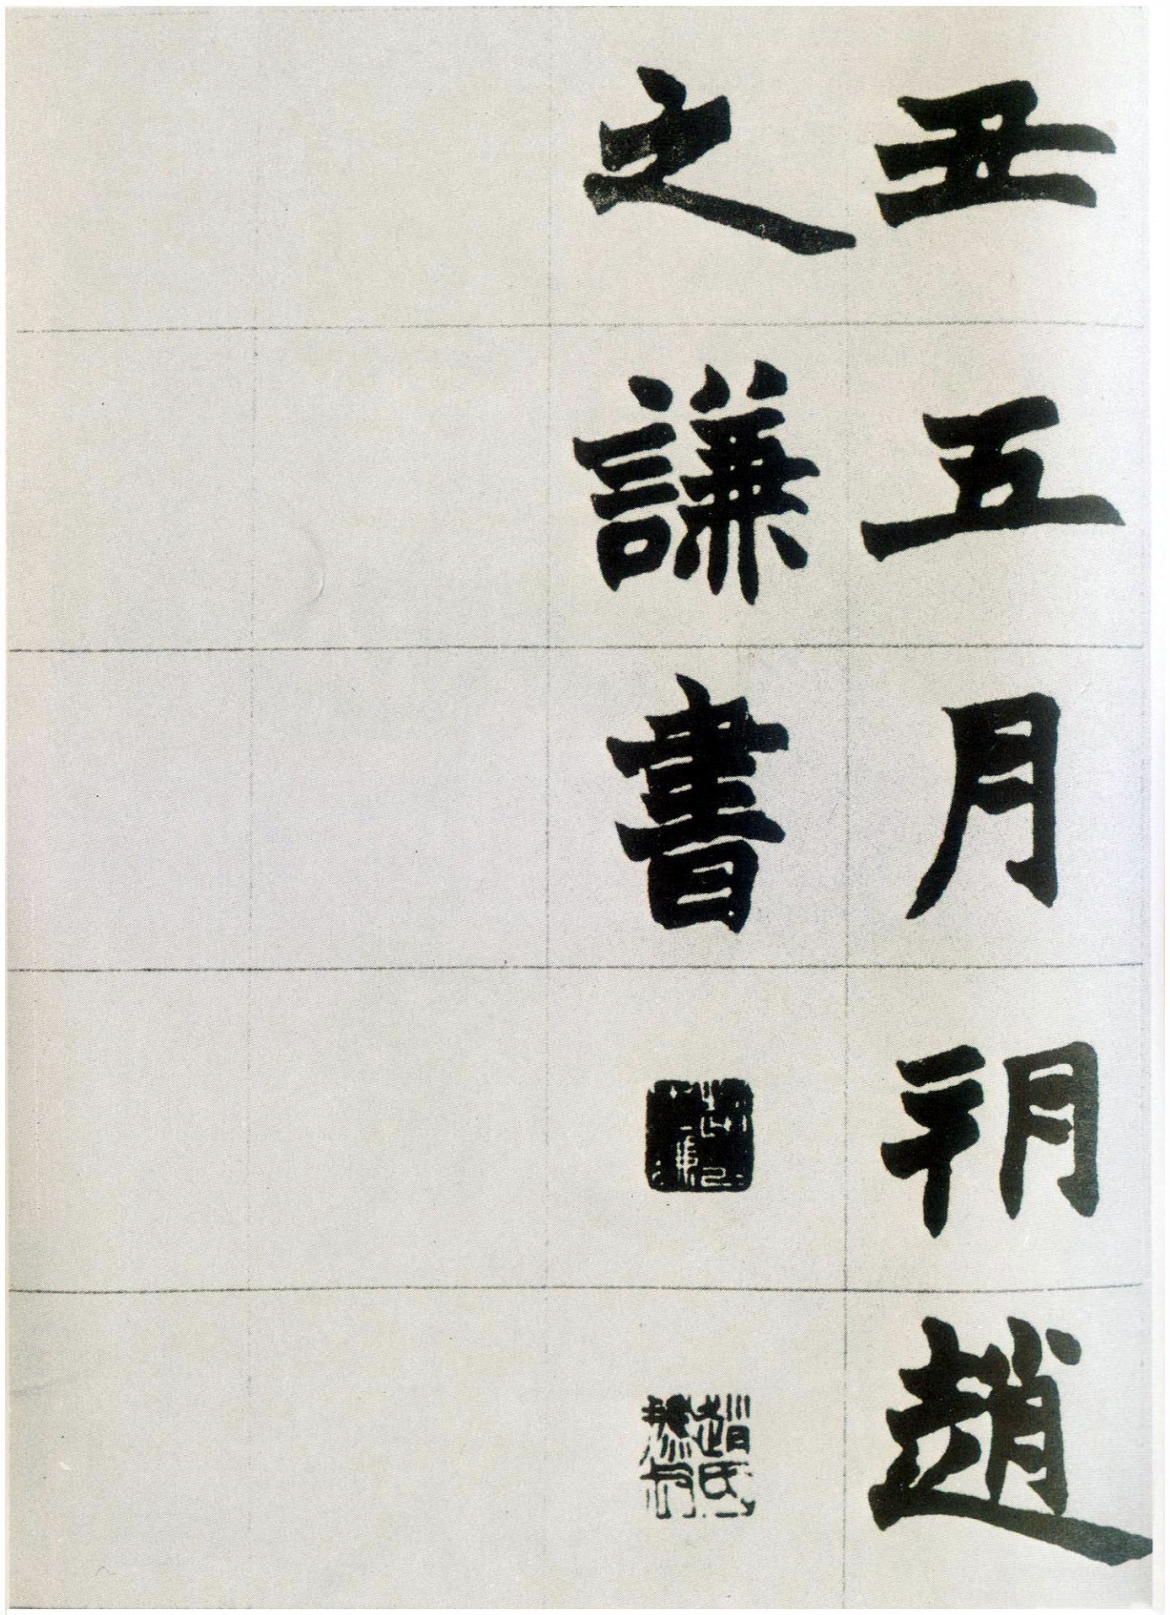 丑五月朔趙
之謙書
趙氏㧑叔